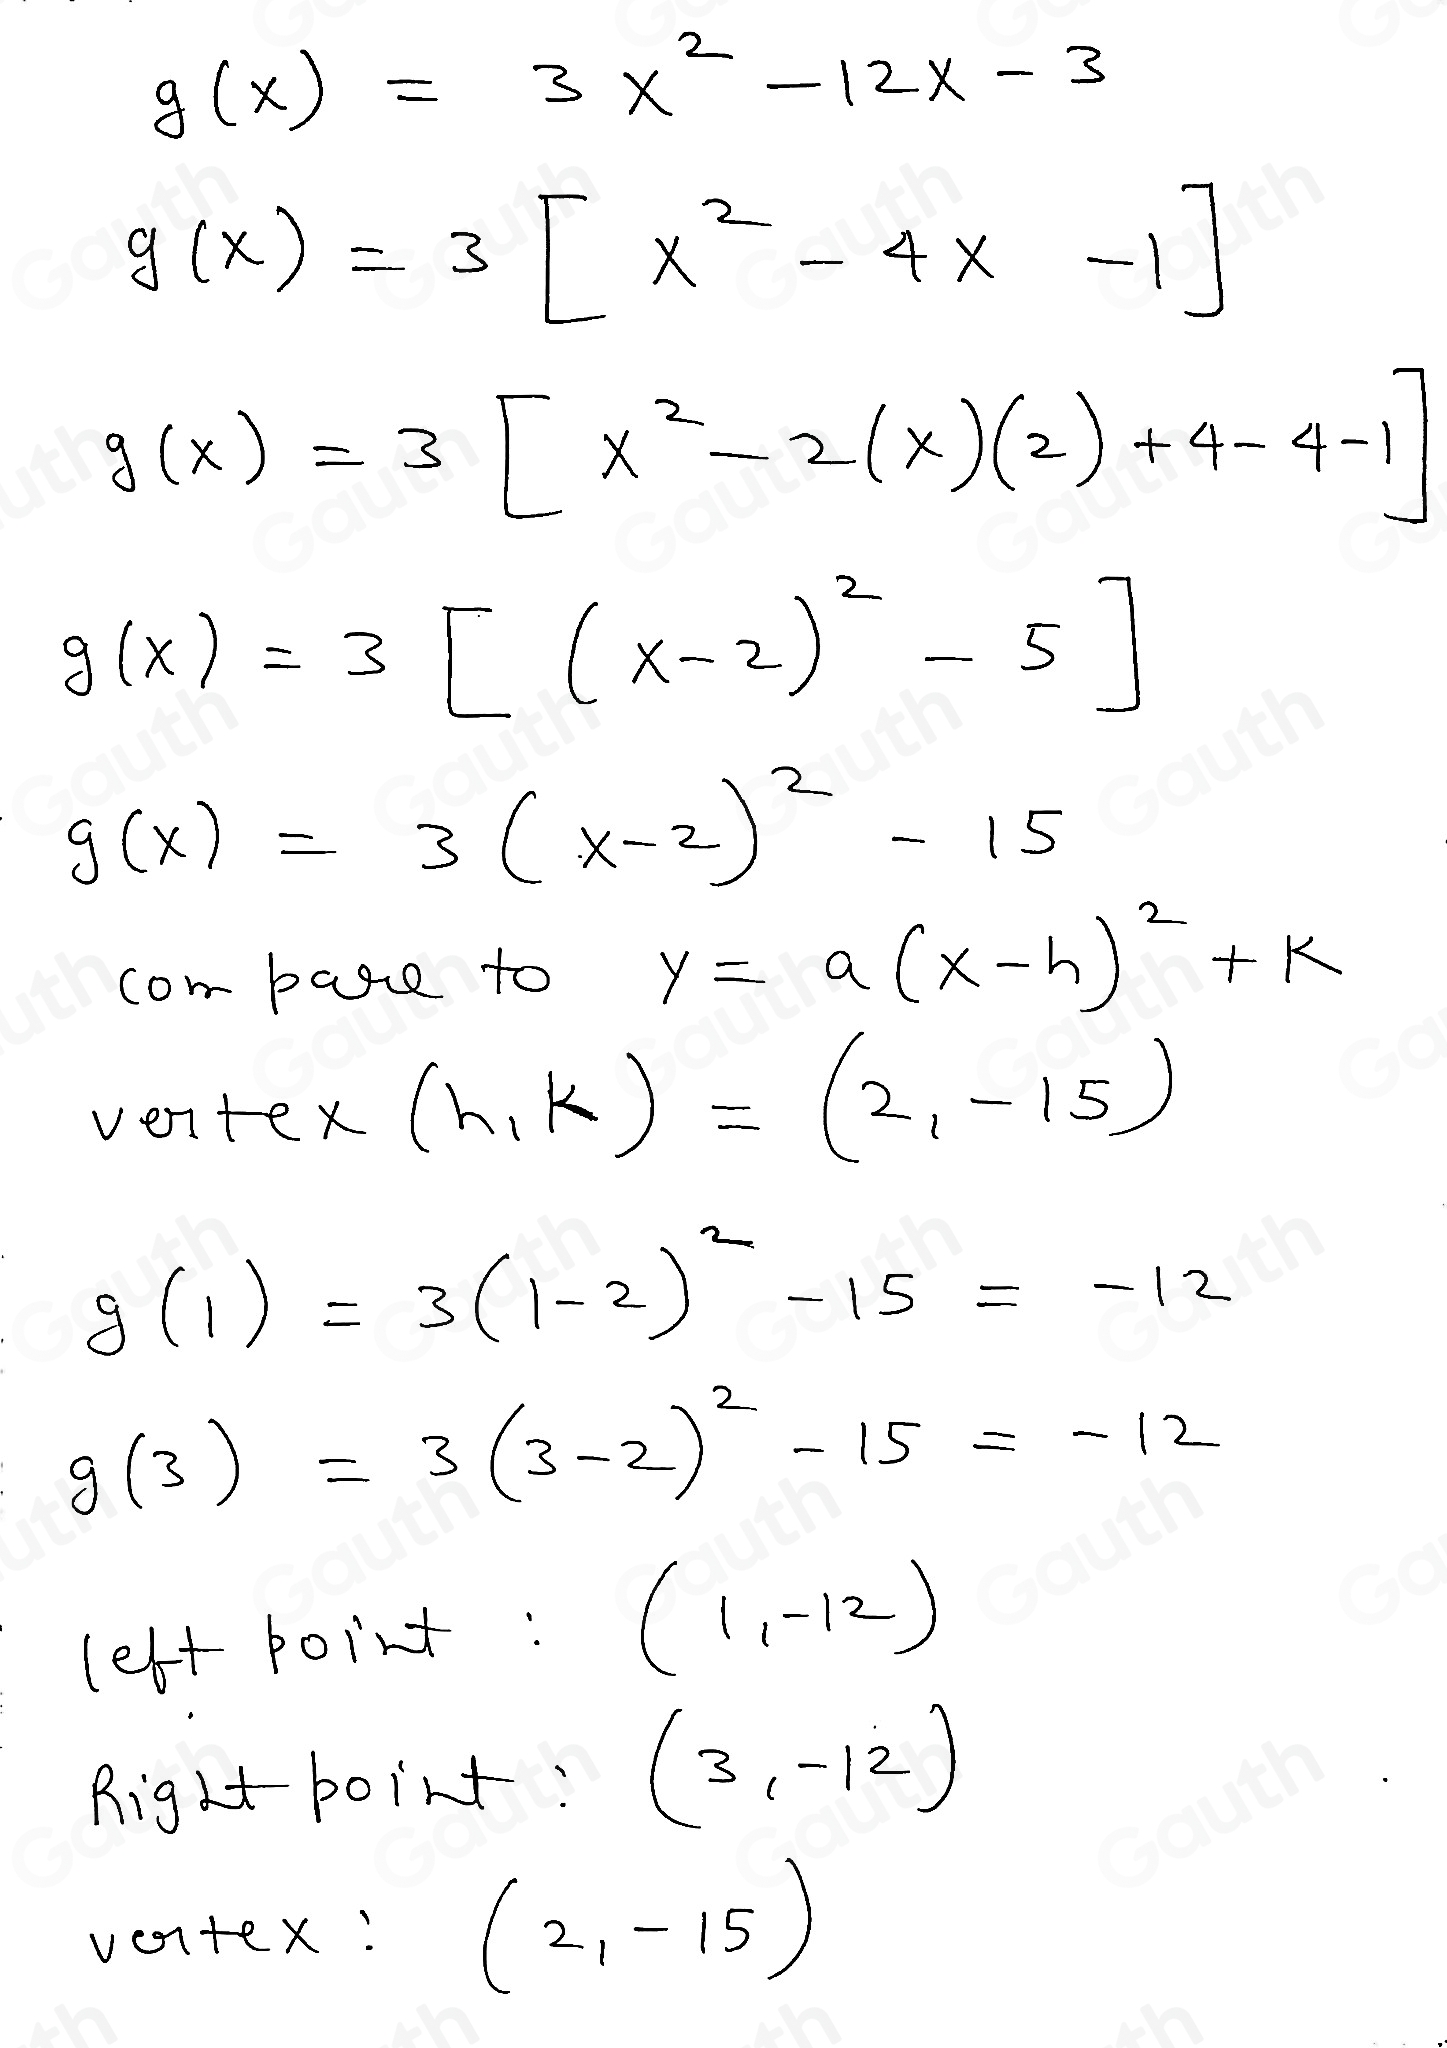 g(x) = 3x² - 12x - 3
g(x) = 3[x² - 4x - 1]
g(x) = 3[x² - 2(x)(2) + 4 - 4 - 1]
g(x) = 3[(x-2)² - 5]
g(x) = 3(x-2)² - 15
compare to y = a(x-h)² + k
vertex (h,k) = (2, -15)
g(1) = 3(1-2)² - 15 = -12
g(3) = 3(3-2)² - 15 = -12
left point : (1, -12)
Right point : (3, -12)
vertex : (2, -15)